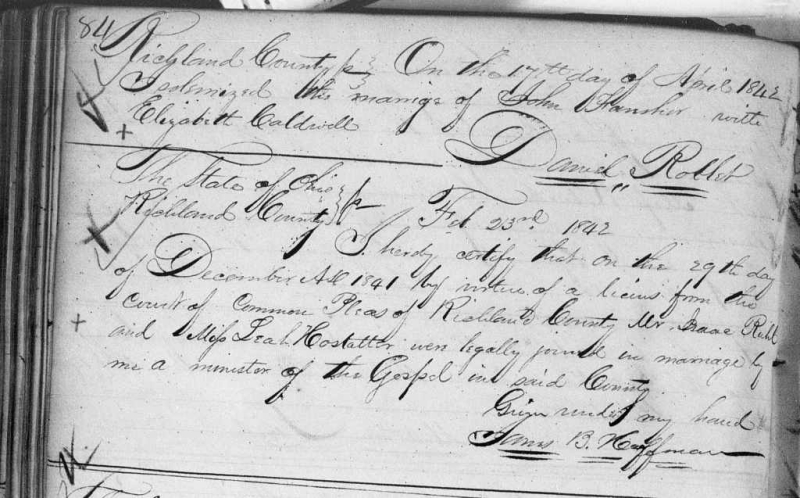 84
Richland County ss On the 17th day of April 1842
I solemnized the marrige of John Hanshir with
Elizabeth Caldwell
David Roblet
The State of Ohio
Richland County ss Feb 23rd 1842
I herby certify that on the 29th day
of December AD 1841 by virtue of a licens from the
Court of Common Pleas of Richland County Mr. Isaac
and Miss Leah Hostatter were legally joined in marriage by
me a minister of the Gospel in said County
Given under my hand
James B. Hoffman